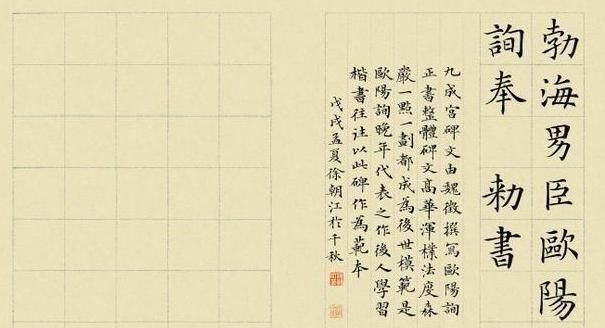 勃海男臣歐陽
詢奉 勅書
九成宮碑文由魏徵撰寫歐陽詢
正書整體碑文高華渾樸法度森
嚴一點一劃都成為後世模範是
歐陽詢晚年代表之作後人學習
楷書往往以此碑作為範本
戊戌孟夏徐朝江於千秋